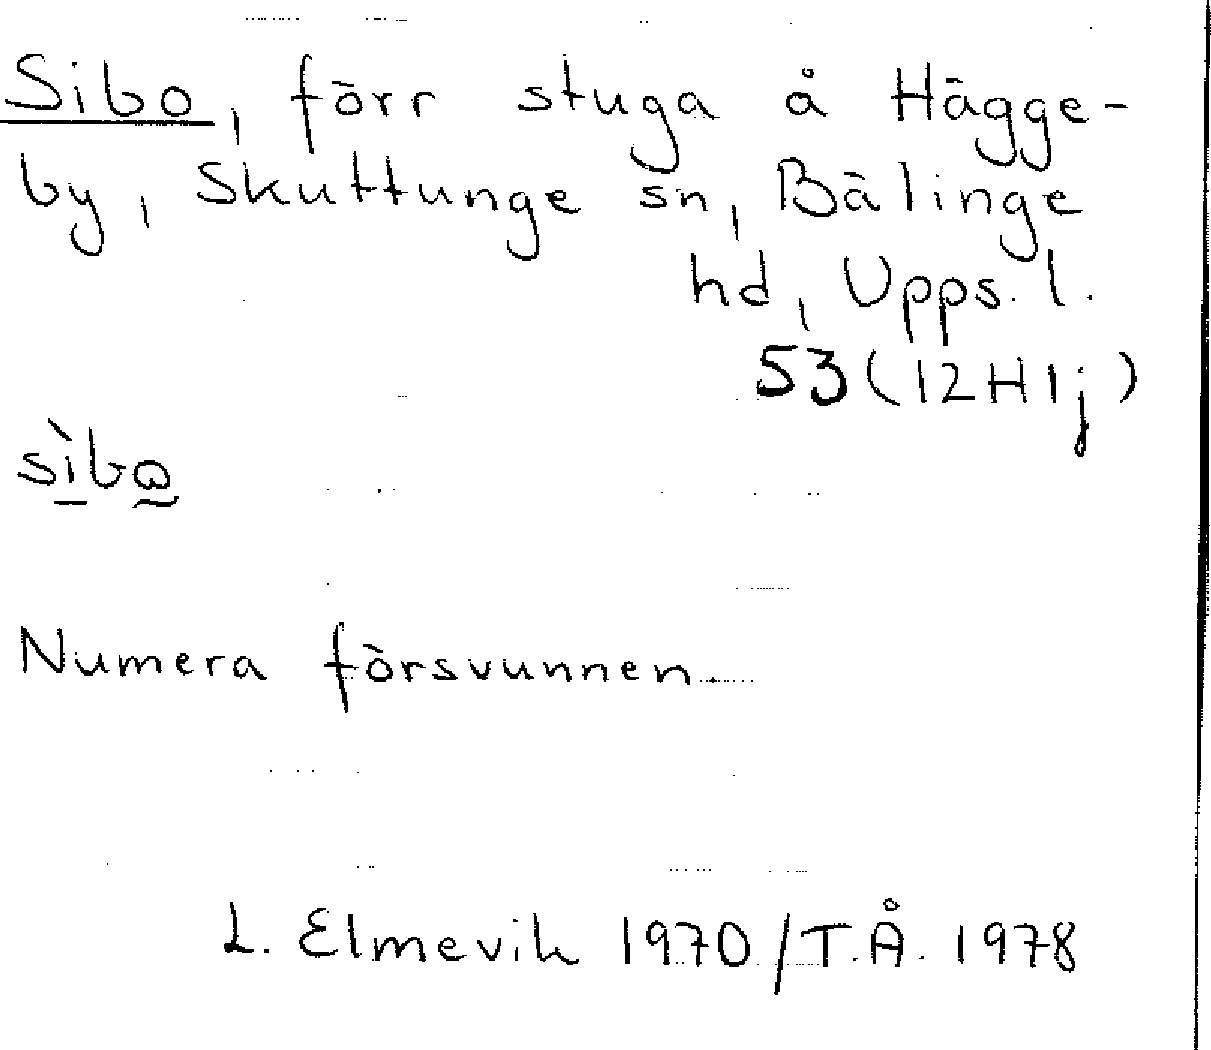 Sibo, förr stuga å Hägge-
by, Skuttunge sn, Bälinge
hd, Upps. l.
53 (12H1j)
Numera försvunnen
L. Elmevik 1970/T.Å. 1978